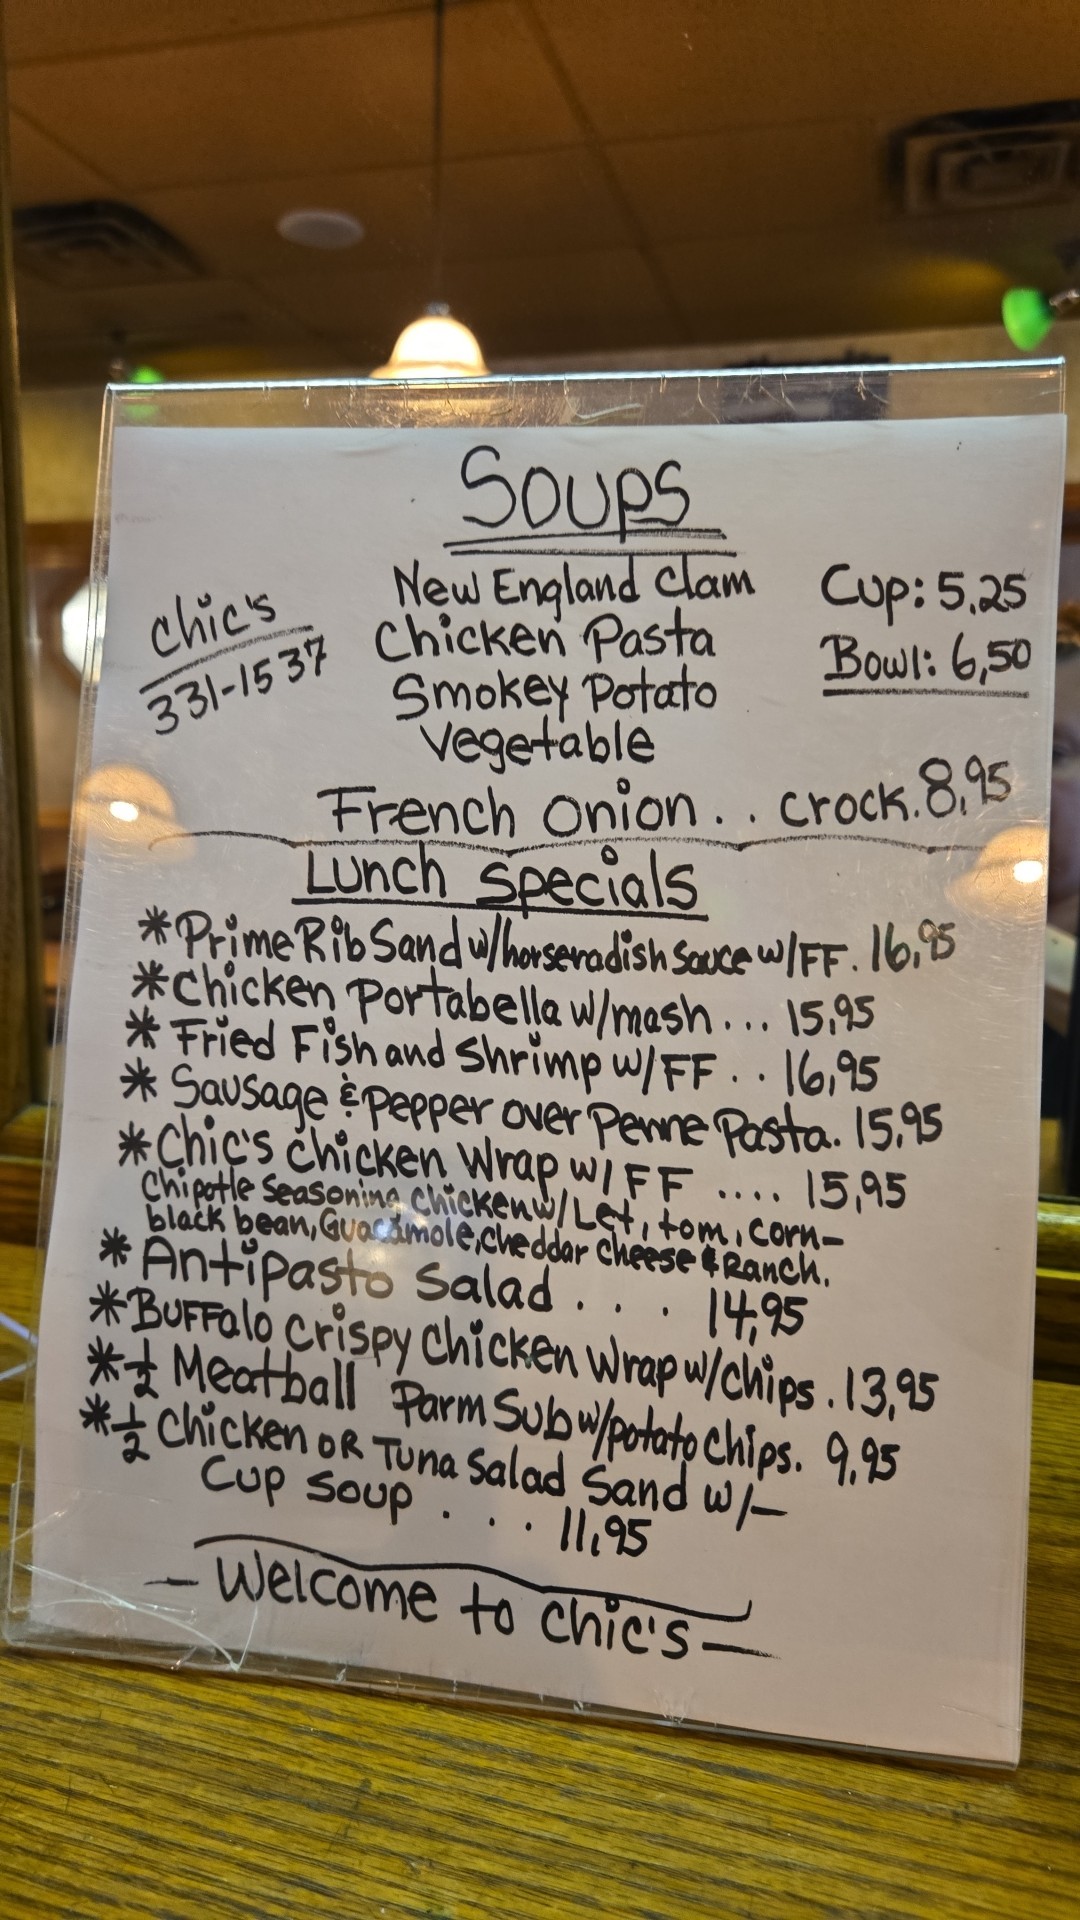 Soups
New England Clam
Chicken Pasta
Smokey Potato
Vegetable
Cup: 5,25
Bowl: 6,50
Chic's
331-1537
French Onion . . crock. 8,95
Lunch Specials
* Prime Rib Sand w/horseradish sauce w/FF . 16,95
* Chicken Portabella w/mash ... 15,95
* Fried Fish and Shrimp w/FF . . 16,95
* Sausage & Pepper over Penne Pasta. 15,95
* Chic's Chicken Wrap w/FF .... 15,95
Chipotle Seasoning Chicken w/Let, tom, corn-
black bean, Guacamole, Cheddar Cheese & Ranch.
* Antipasto Salad . . . 14,95
* Buffalo Crispy Chicken Wrap w/chips . 13,95
* 1/2 Meatball Parm Sub w/potato Chips. 9,95
* 1/2 Chicken or Tuna Salad Sand w/-
Cup Soup . . . 11,95
- Welcome to Chic's -